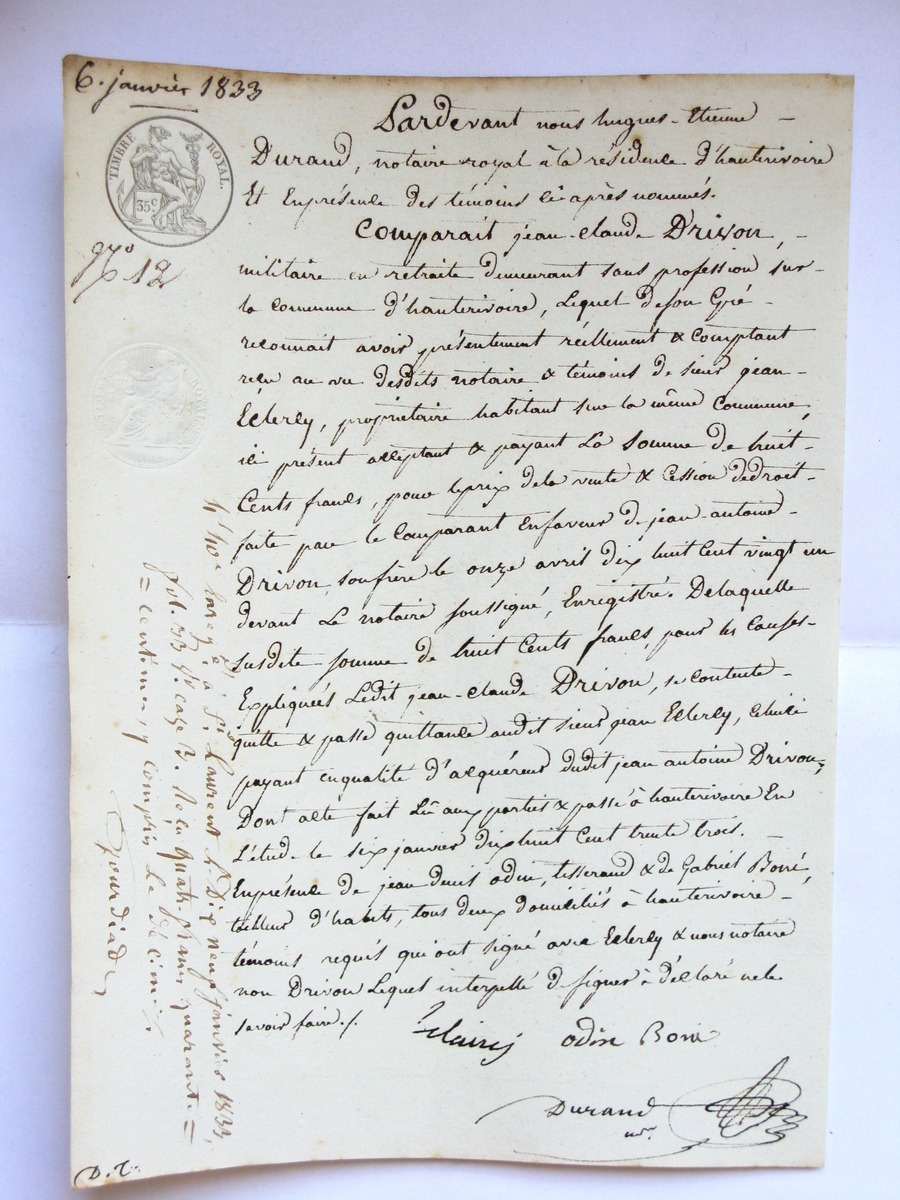 6. janvier 1833
TIMBRE ROYAL.
35c
No 12
Pardevant nous hugues-Etienne
Durand, notaire royal à la résidence d'hauterivoire
Et Enprésence des témoins ci après nommés.
Comparait jean-claude Drivon,
militaire en retraite demeurant sans profession sur
la commune d'hauterivoire, Lequel deson Gré
reconnait avoir présentement réellement & comptant
reçu au vu desdits notaire & témoins de sieur jean
Eclercy, propriétaire habitant sur la même Commune,
ici présent acceptant & payant La Somme de huit
Cents francs, pour leprix dela vente & Cession dedroit
faite par le Comparant Enfaveur de jean-antoine
Drivon, sonfrère le onze avril dix huit Cent vingt un
devant Le notaire soussigné, Enrégistré. Delaquelle
susdite somme de huit Cents francs, pour les Causes
Expliquées Ledit jean-Claude Drivon, se contente
quitte & passe quittance audit sieur jean Eclercy, celuici
payant enqualité d'acquéreur dudit jean antoine Drivon,
Dont acte fait Lû aux parties & passé à hauterivoire En
L'étude le six janvier dix huit Cent trente trois.
Enprésence de jean denis odin, tisserand & de Gabriel Boné,
tailleur d'habits, tous deux domiciliés à hauterivoire
témoins requis qui ont signé avec Eclercy & nous notaire
non Drivon Lequel interpellé de signer à déclaré nele
savoir faire./.
odin Boné
Durand
nre
à St Laurent le Dix neuf janvier 1833,
fol. 33 Vo. case 3. Reçu quatre francs quarante
=centimes, y compris Le décime.
D. T.